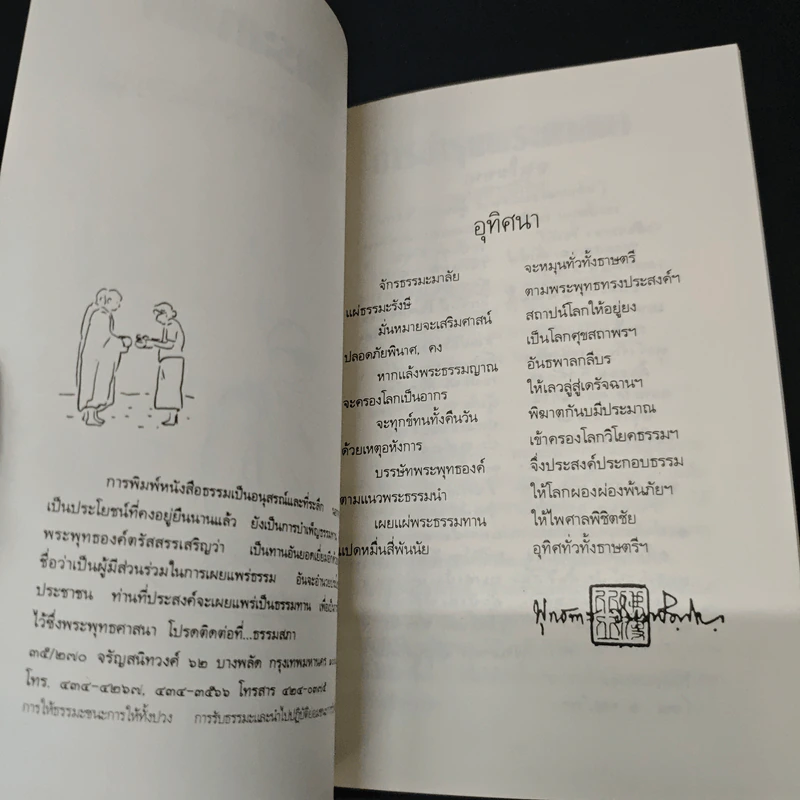 การพิมพ์หนังสือธรรมเป็นอนุสรณ์และที่ระลึก
เป็นประโยชน์ที่คงอยู่ยืนนานแล้ว ยังเป็นการบำเพ็ญธรรมทาน
พระพุทธองค์ตรัสสรรเสริญว่า เป็นทานอันยอดเยี่ยม
ชื่อว่าเป็นผู้มีส่วนร่วมในการเผยแพร่ธรรม อันจะอำนวย
ประชาชน ท่านที่ประสงค์จะเผยแพร่เป็นธรรมทาน
ไว้ซึ่งพระพุทธศาสนา โปรดติดต่อที่...ธรรมสภา
๓๕/๒๗๐ จรัญสนิทวงศ์ ๖๒ บางพลัด กรุงเทพมหานคร
โทร. ๔๓๔-๔๒๖๗, ๔๓๔-๓๕๖๖ โทรสาร
การให้ธรรมะชนะการให้ทั้งปวง การรับธรรมะและนำไปปฏิบัติย่อมชนะ
อุทิศนา
จักรธรรมะมาลัย จะหมุนทั่วทั้งธาษตรี
แผ่ธรรมะรังษี ตามพระพุทธทรงประสงค์ฯ
มั่นหมายจะเสริมศาสน์ สถาปน์โลกให้อยู่ยง
ปลอดภัยพินาศ, คง เป็นโลกศุขสถาพรฯ
หากแล้งพระธรรมญาณ อันธพาลกลีบร
จะครองโลกเป็นอากร ให้เลวลู่สู่เดรัจฉานฯ
จะทุกข์ทนทั้งคืนวัน พิฆาตกันบมีประมาณ
ด้วยเหตุอหังการ เข้าครองโลกวิโยคธรรมฯ
บรรษัทพระพุทธองค์ จึ่งประสงค์ประกอบธรรม
ตามแนวพระธรรมนำ ให้โลกผองผ่องพ้นภัยฯ
เผยแผ่พระธรรมทาน ให้ไพศาลพิชิตชัย
แปดหมื่นสี่พันนัย อุทิศทั่วทั้งธาษตรีฯ